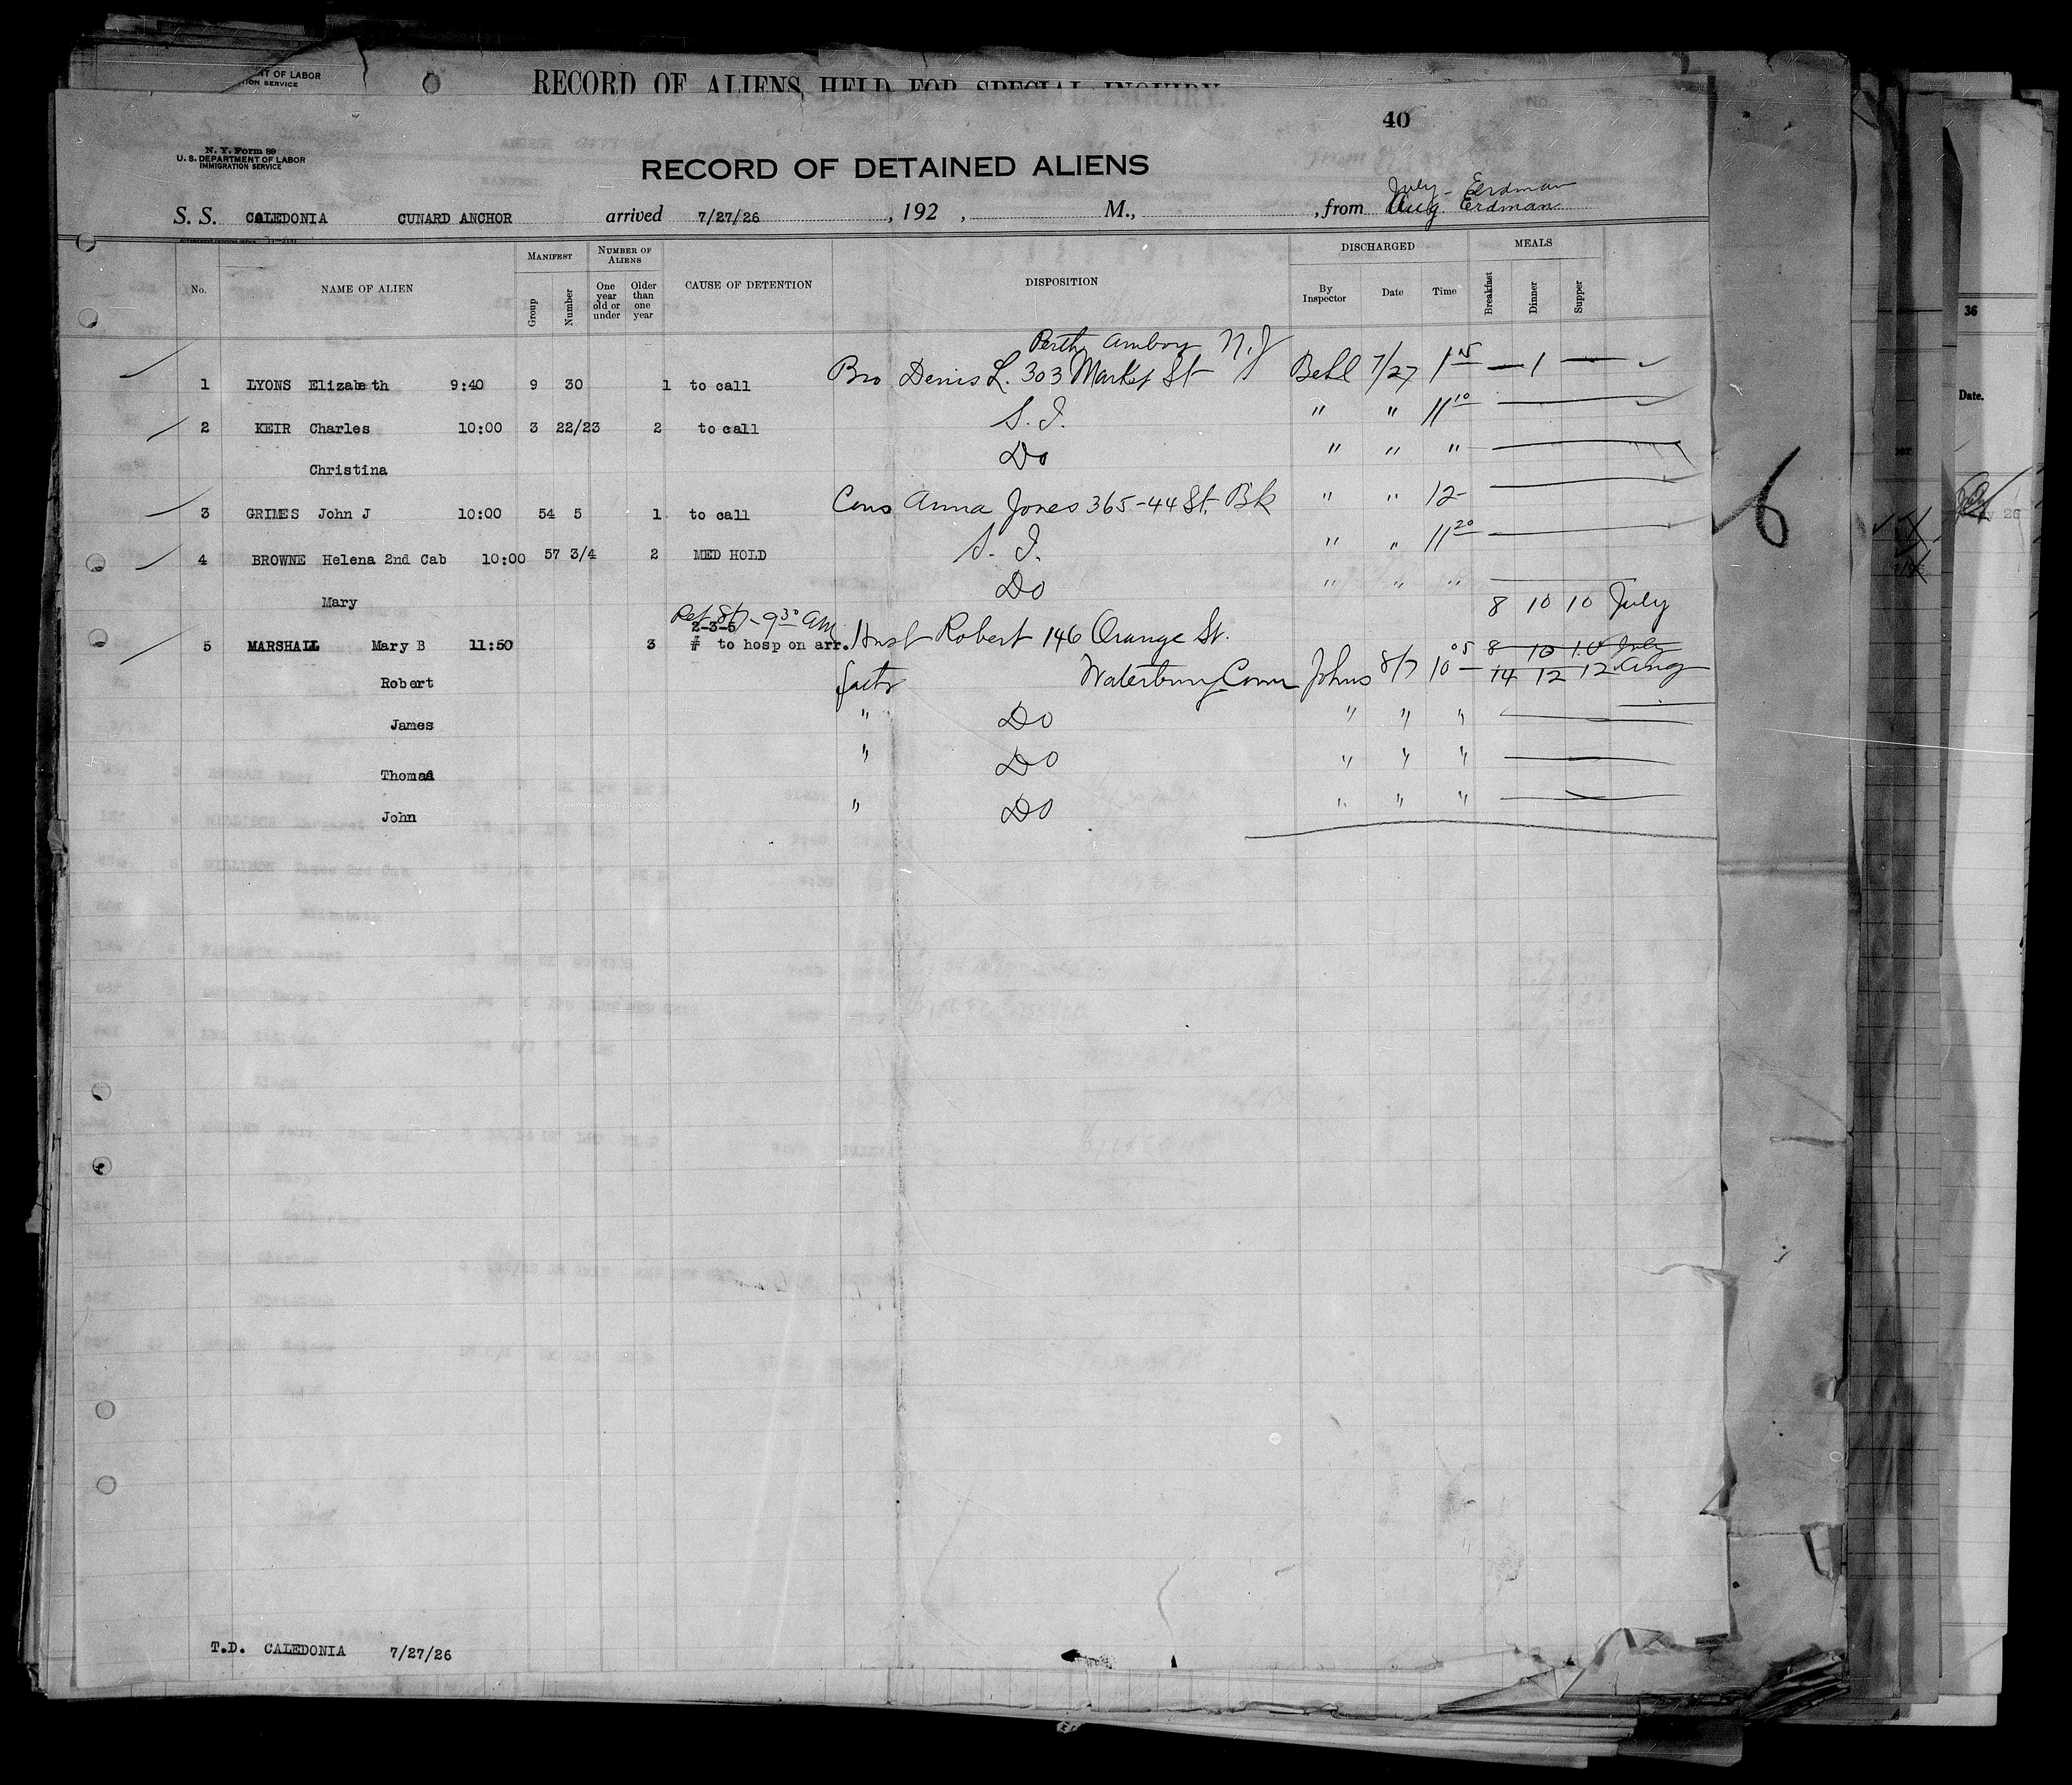 NT OF LABOR
TION SERVICE
RECORD OF ALIENS HELD FOR SPECIAL INQUIRY.
40
N. Y. Form 89
U. S. DEPARTMENT OF LABOR
IMMIGRATION SERVICE
RECORD OF DETAINED ALIENS
July - Erdman
S. S. CALEDONIA CUNARD ANCHOR arrived 7/27/26 , 192 , M., , from Aug. Erdman
No. NAME OF ALIEN MANIFEST Group Number NUMBER OF ALIENS One year old or under Older than one year CAUSE OF DETENTION DISPOSITION DISCHARGED By Inspector Date Time MEALS Breakfast Dinner Supper
Perth Amboy N.J
1 LYONS Elizabeth 9:40 9 30 1 to call Bro Denis L. 303 Market St Behl 7/27 1 15 — 1 —
2 KEIR Charles 10:00 3 22/23 2 to call S. I. " " 11 10
Christina Do " " "
3 GRIMES John J 10:00 54 5 1 to call Cous Anna Jones 365-44 St. Bk " " 12-
4 BROWNE Helena 2nd Cab 10:00 57 3/4 2 MED HOLD S. I. " " 11 20
Mary Do " " "
8 10 10 July
Ret 8/7 - 9 30 AM
2-3-5
5 MARSHALL Mary B 11:50 3 # to hosp on arr. Husb Robert 146 Orange St. 8 10 10 July
Robert fath Waterbury Conn Johns 8/7 10 05 14 12 12 Aug
James " Do " " "
Thomas " Do " " "
John " Do " " "
T.D. CALEDONIA 7/27/26
36
Date.